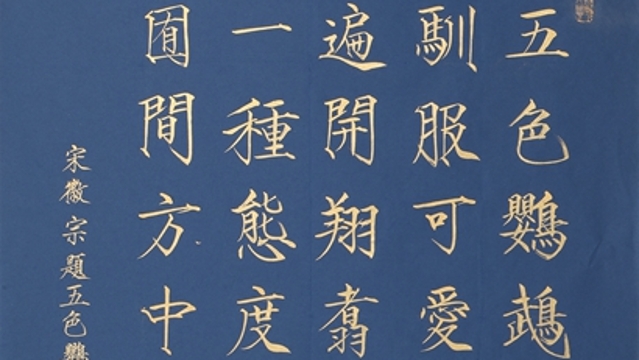 五色鸚鵡
馴服可愛
遍開翔翥
一種態度
囿間方中
宋徽宗題五色鸚